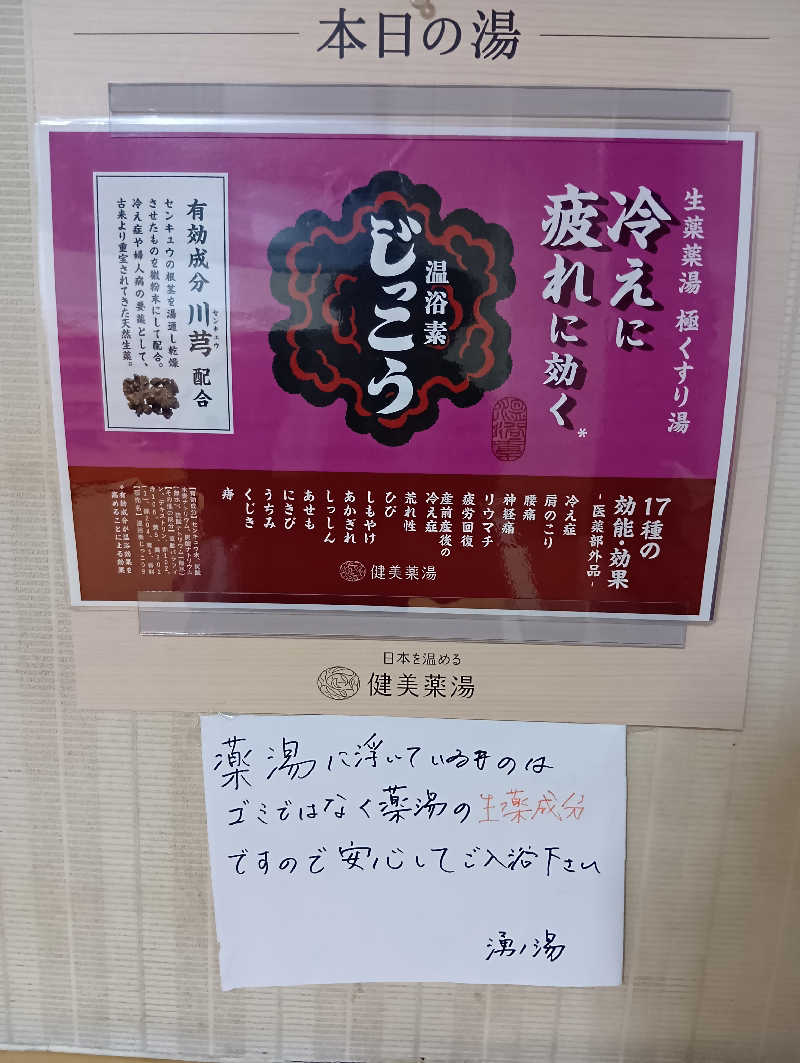 本日の湯
生薬薬湯 極くすり湯
冷えに
疲れに効く*
温浴素
じっこう
有効成分 川芎 配合
センキュウ
センキュウの根茎を湯通し乾燥
させたものを微粉末にして配合。
冷え症や婦人病の要薬として、
古来より重宝されてきた天然生薬。
17種の
効能・効果
-医薬部外品-
冷え症
肩のこり
腰痛
神経痛
リウマチ
疲労回復
産前産後の
冷え症
荒れ性
ひび
しもやけ
あかぎれ
しっしん
あせも
にきび
うちみ
くじき
痔
*有効成分が温浴効果を
高めることによる効果
健美薬湯
日本を温める
健美薬湯
薬湯に浮いているものは
ゴミではなく薬湯の生薬成分
ですので安心してご入浴下さい
湧ノ湯